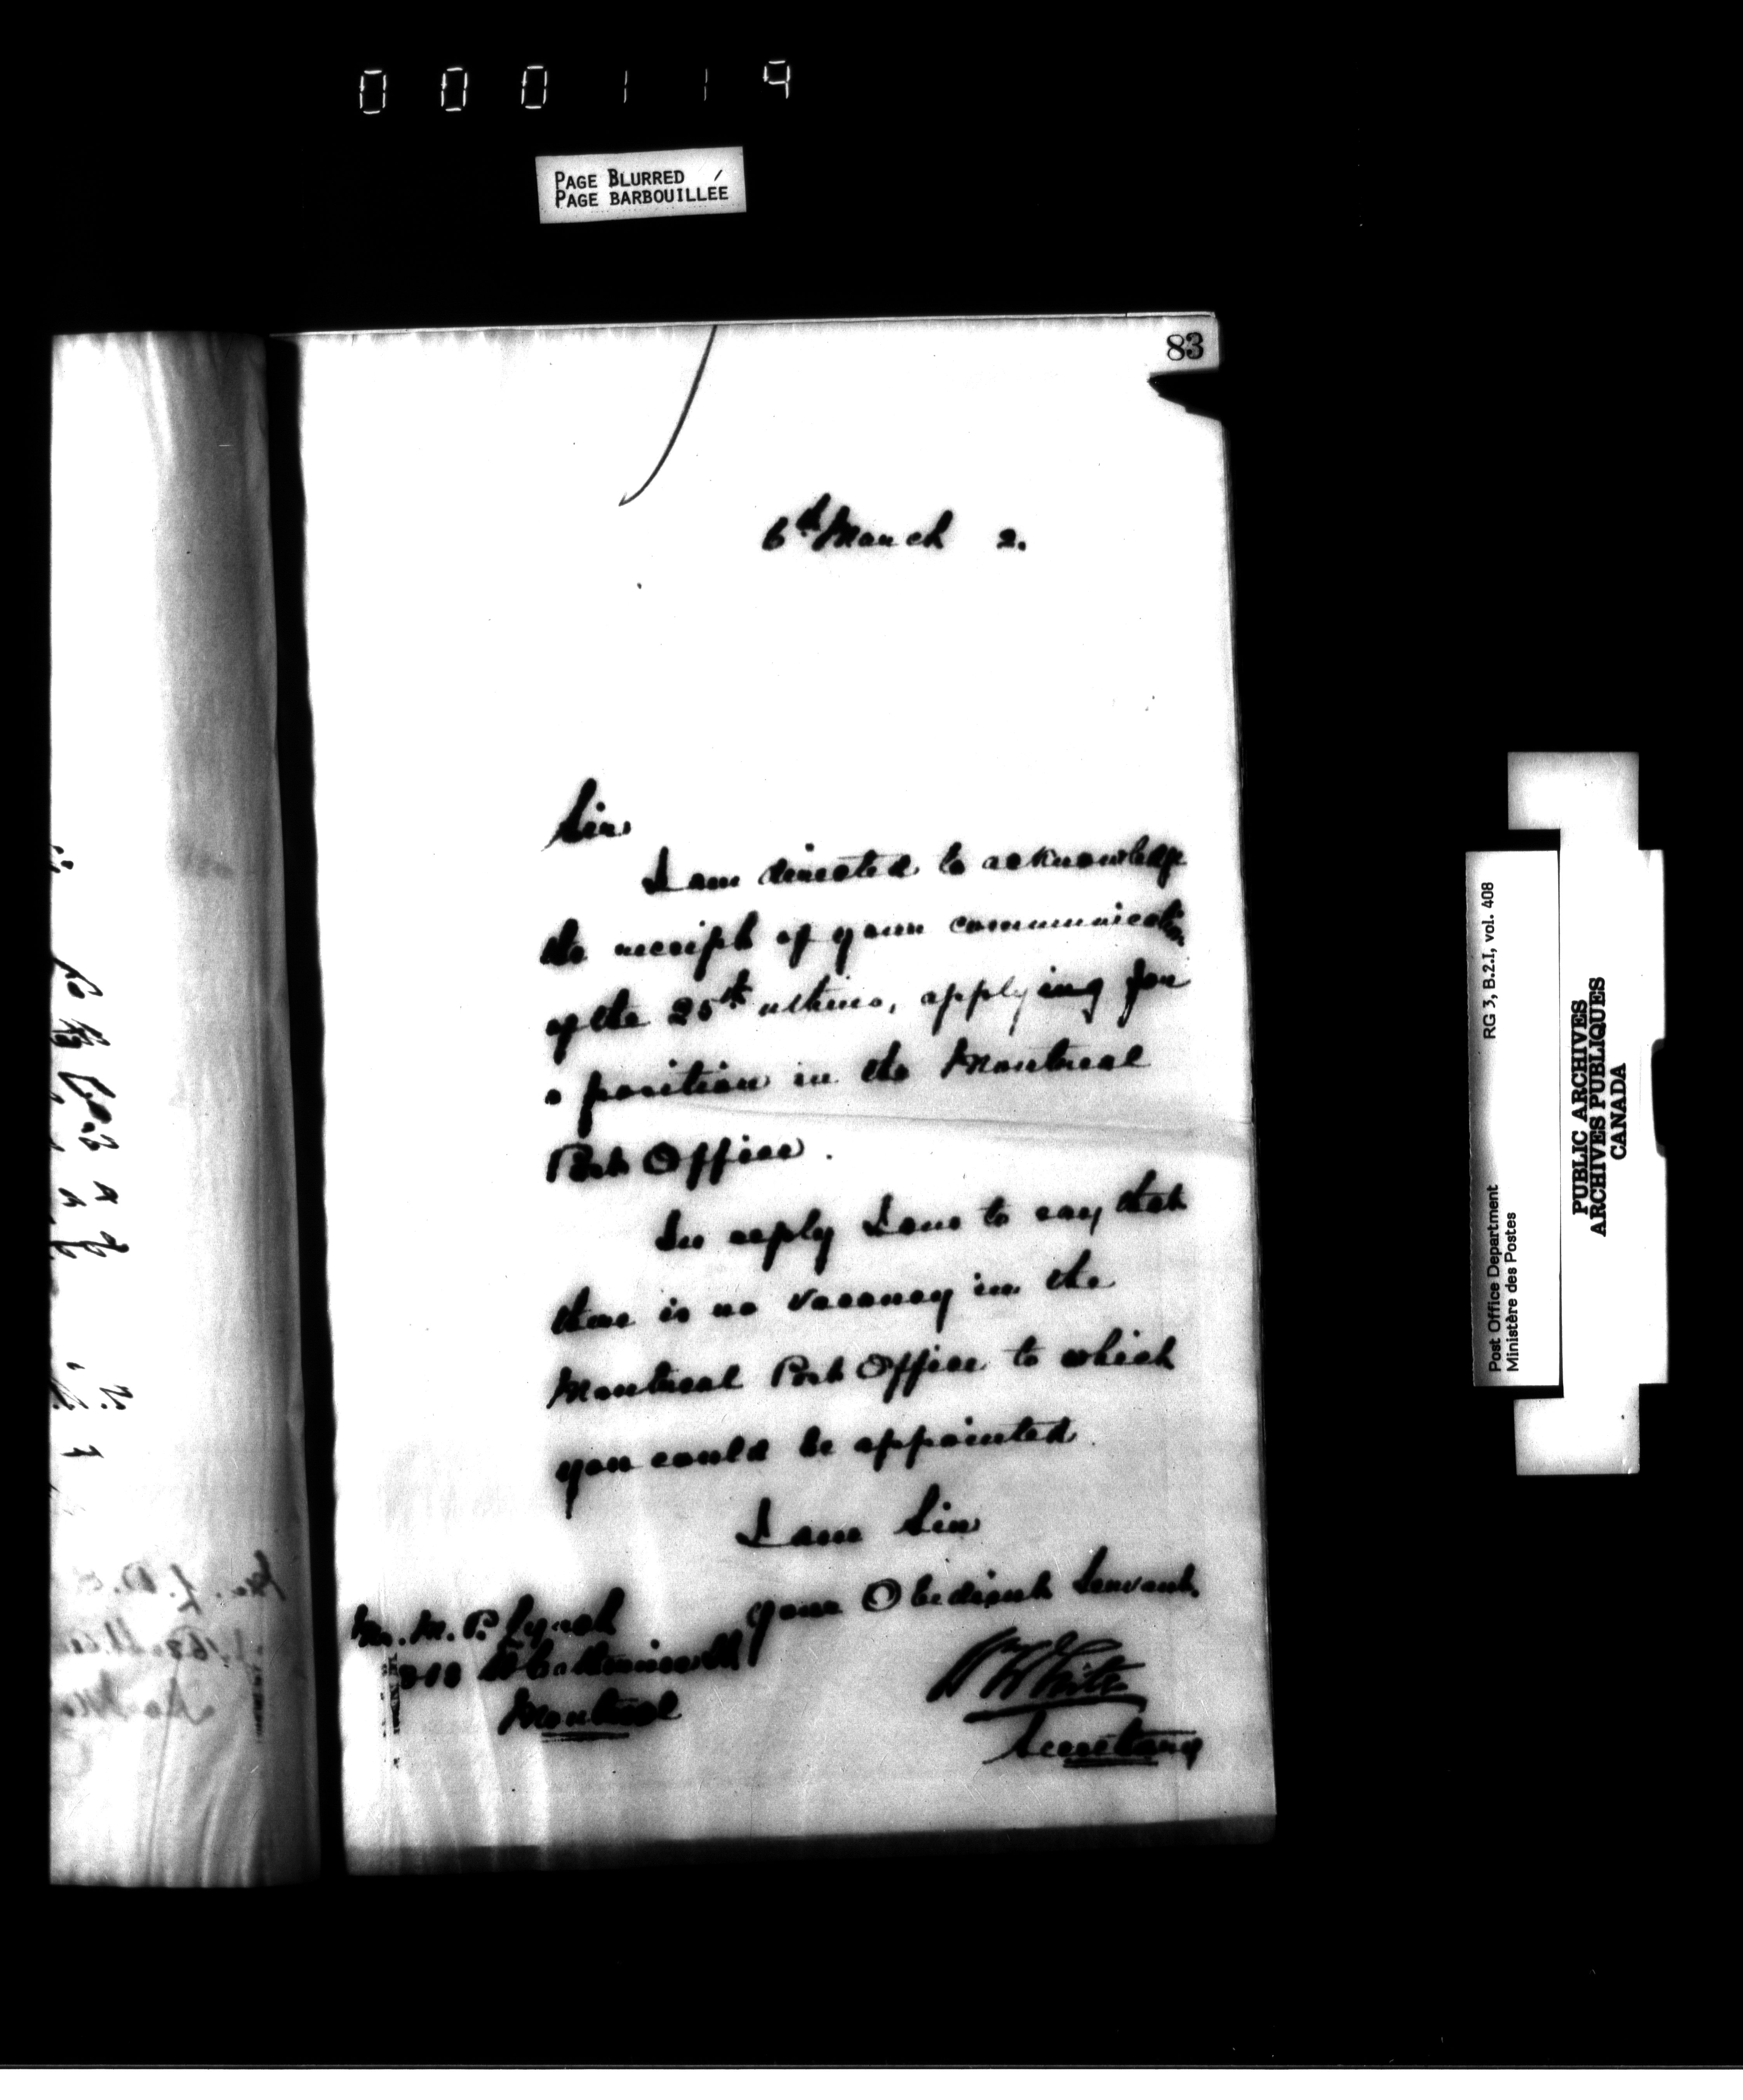 000119
PAGE BLURRED
PAGE BARBOUILLÉE
83
6th March 2.
Sir,
I am directed to acknowledge
the receipt of your communication
of the 25th ultimo, applying for
a position in the Montreal
Post Office.
In reply I am to say that
there is no vacancy in the
Montreal Post Office to which
you could be appointed.
I am Sir
your Obedient Servant,
Mr. M. P. Lynch
St Catherine St
Montreal
W White
Secretary
Post Office Department
Ministère des Postes
RG 3, B.2.I, vol. 408
PUBLIC ARCHIVES
ARCHIVES PUBLIQUES
CANADA